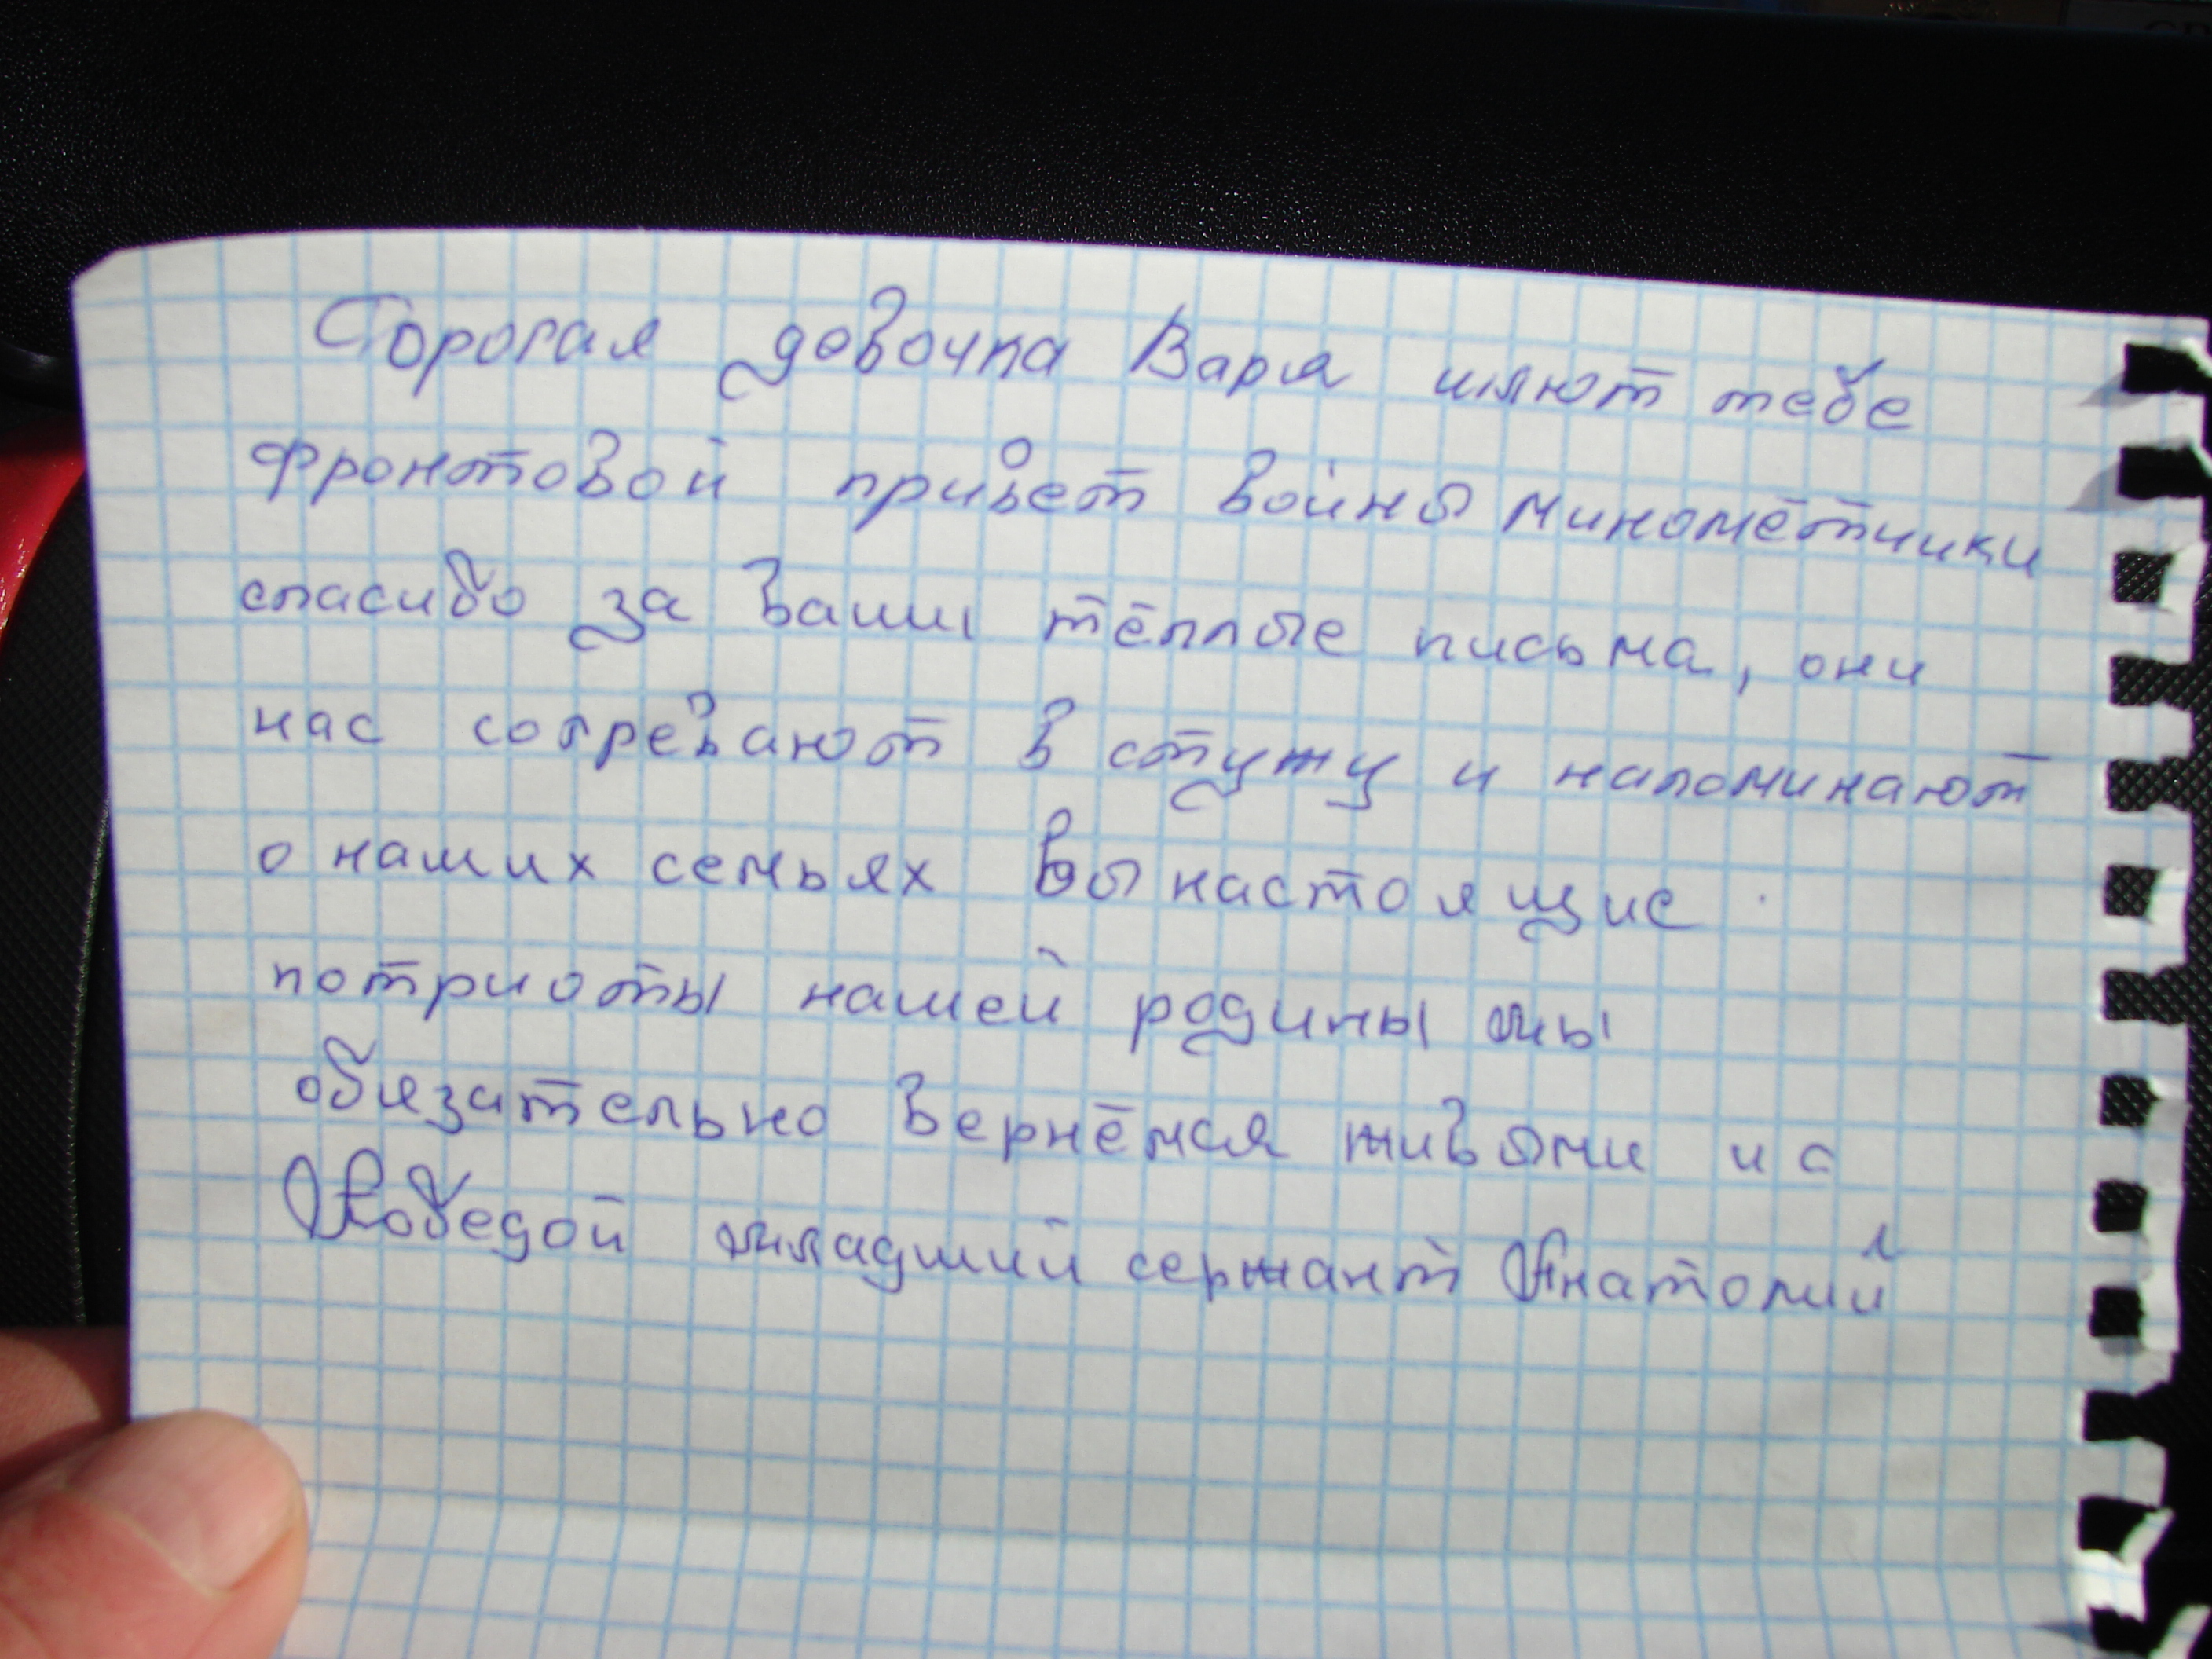 Дорогая девочка Варя шлют тебе
фронтовой привет войны миномётчики
спасибо за Ваши тёплые письма, они
нас согревают в стужу и напоминают
о наших семьях Вы настоящие
потриоты нашей родины мы
обязательно вернёмся живыми и с
Победой младший сержант Анатолий